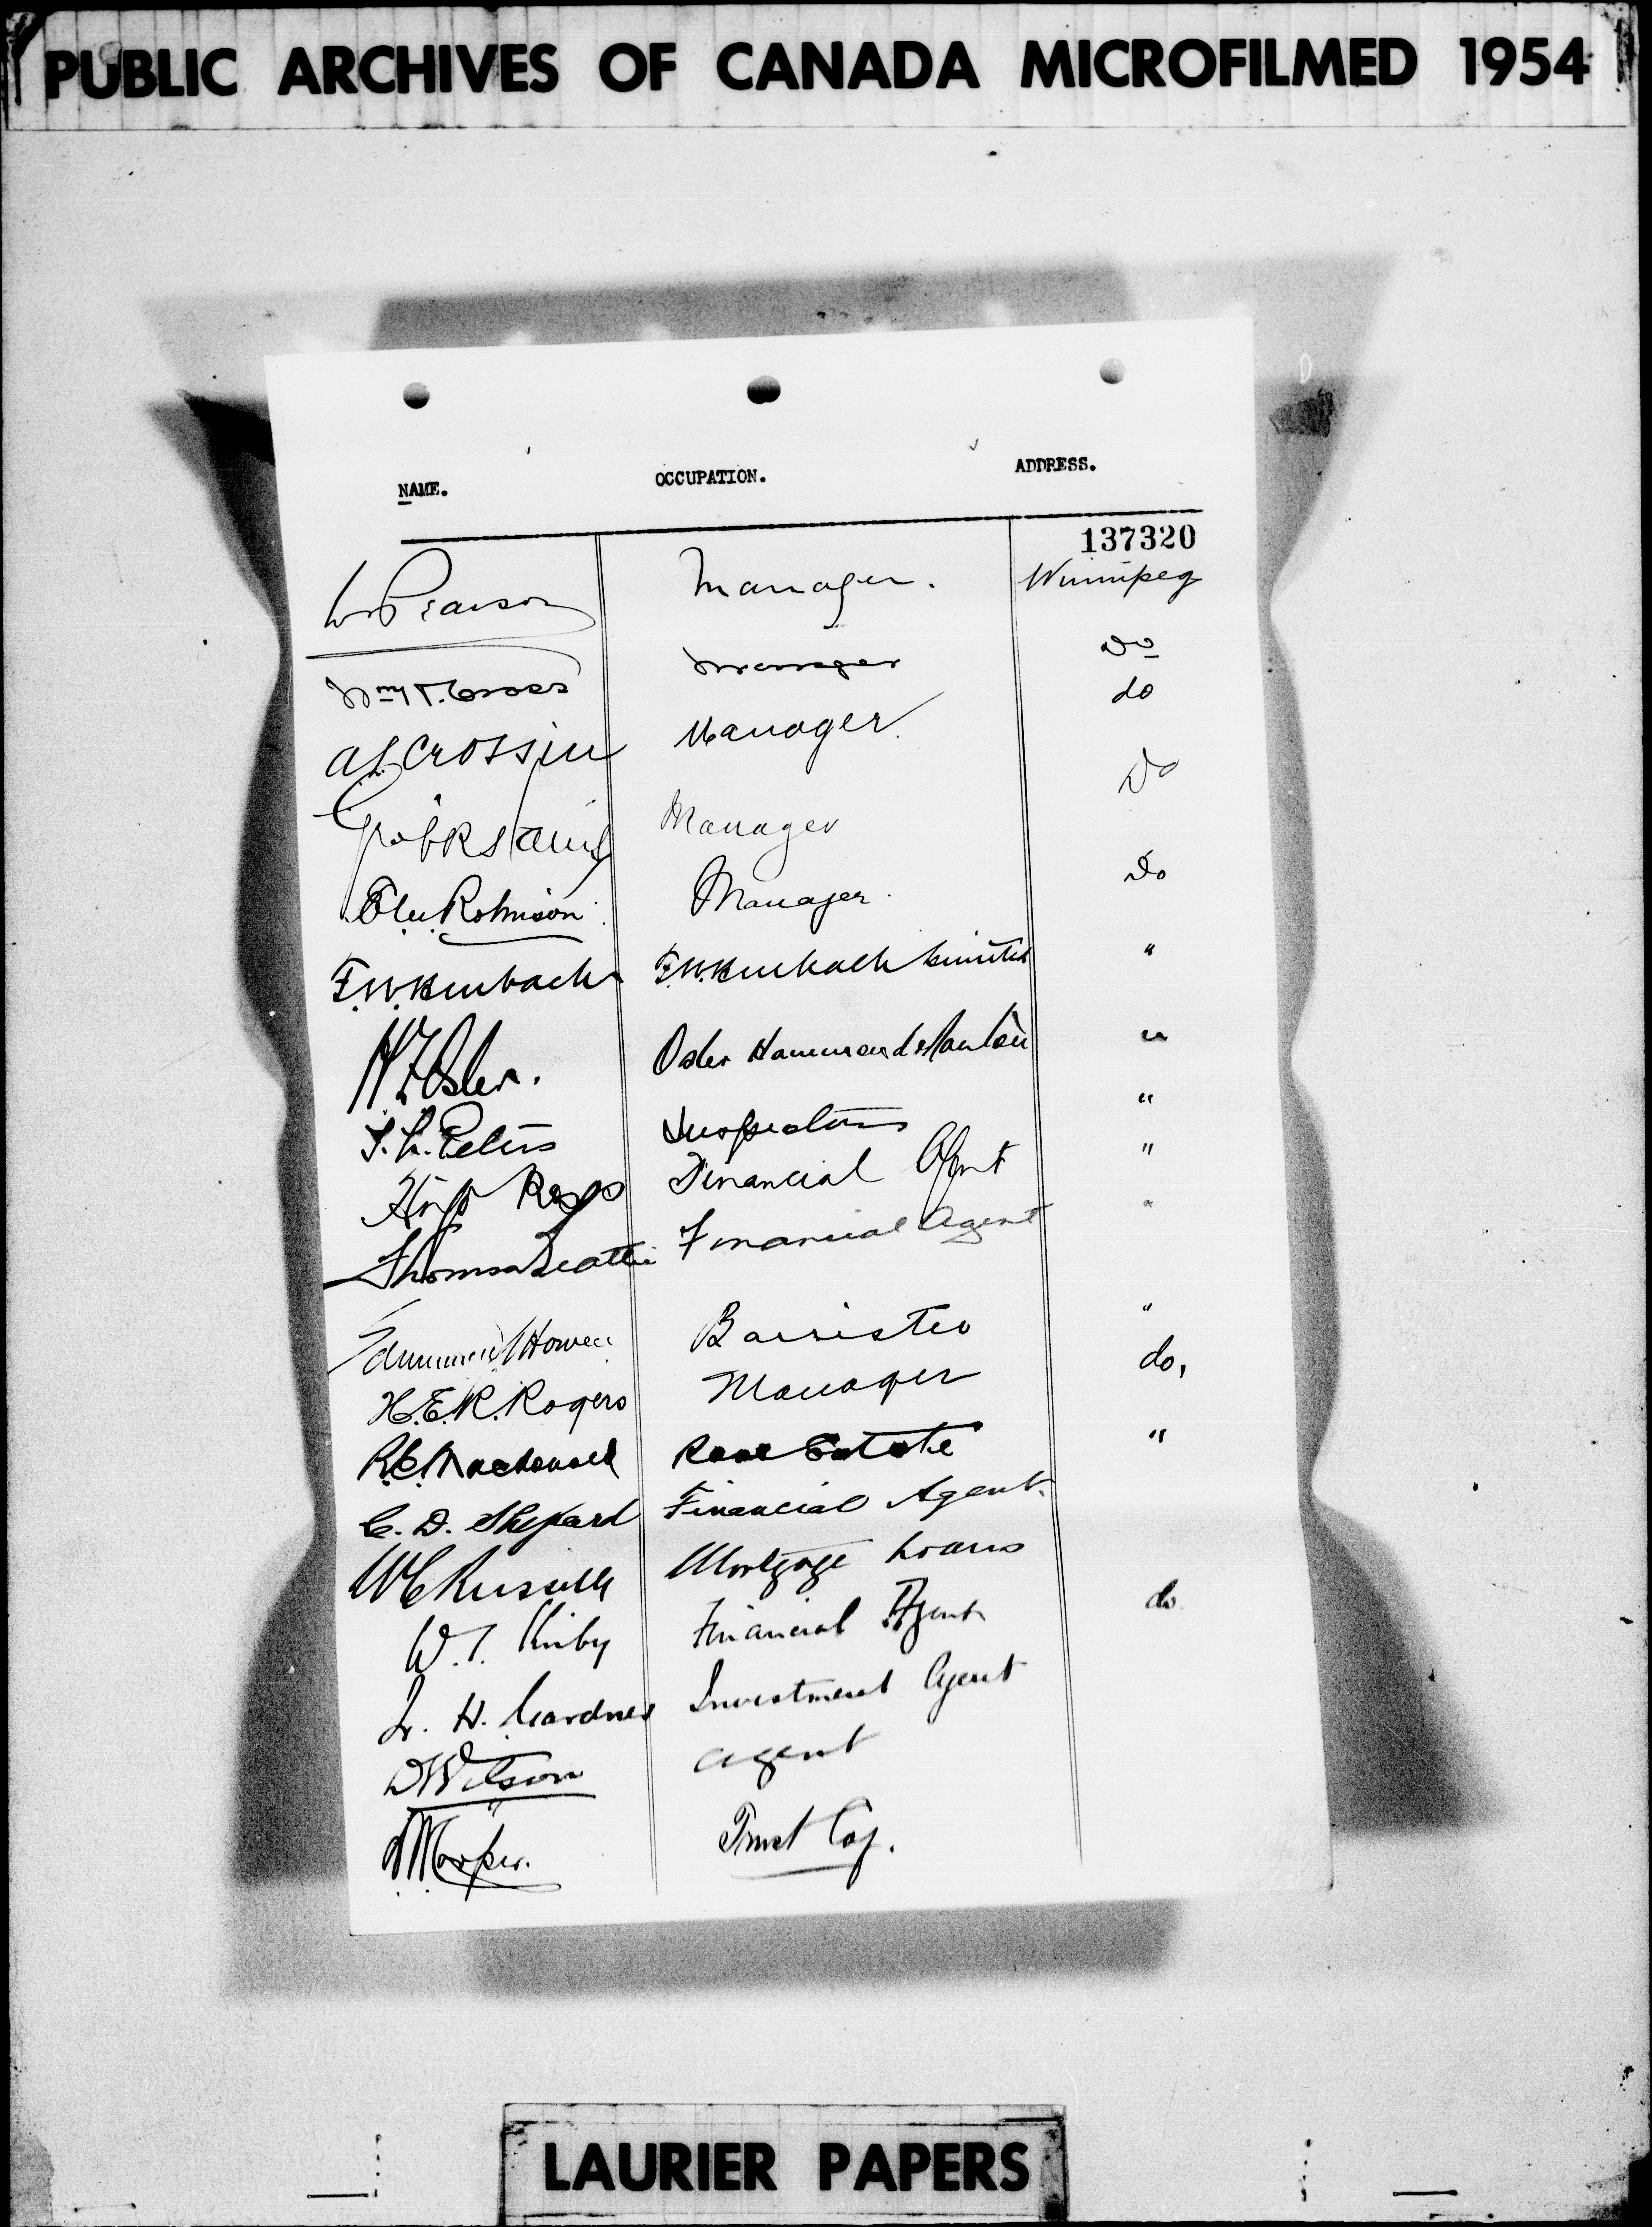 PUBLIC ARCHIVES OF CANADA MICROFILMED 1954
NAME. OCCUPATION. ADDRESS.
137320
W Pearson Manager. Winnipeg
Wm T. Cross Manager Do
A L Crossin Manager. do
Manager Do
Robinson Manager. Do
F.W. Heubach F.W. Heubach Limited "
H F Osler. Osler Hammond & Nanton "
Peters Inspector "
Hugo Ross Financial Agent "
Thomson Beattie Financial Agent "
Howell Barrister "
H.E.R. Rogers Manager do,
R.C. Macdonald Real Estate "
C. D. Shepard Financial Agent.
W C Russell Mortgage Loans
W. T. Kirby Financial Agent do.
H. Gardner Investment Agent
D Wilson Agent
Harper. Trust Coy.
LAURIER PAPERS